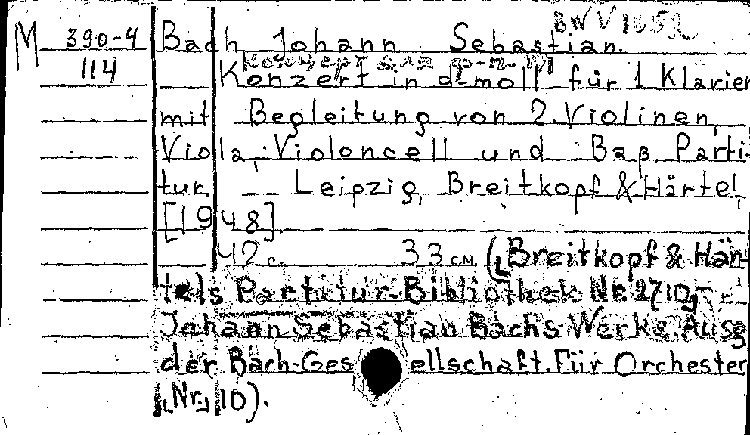 BWV 1052
M 390-4 Bach, Johann Sebastian.
114 Konzert in d-moll für 1 Klavier
mit Begleitung von 2 Violinen,
Viola, Violoncell und Baß. Parti-
tur. — Leipzig, Breitkopf & Härtel
[1948].
42 с. 33 см. (Breitkopf & Här-
tels Partitur-Bibliothek Nr. 2710,-
Johann Sebastian Bachs Werke. Ausg.
der Bach-Gesellschaft. Für Orchester
Nr. 10).